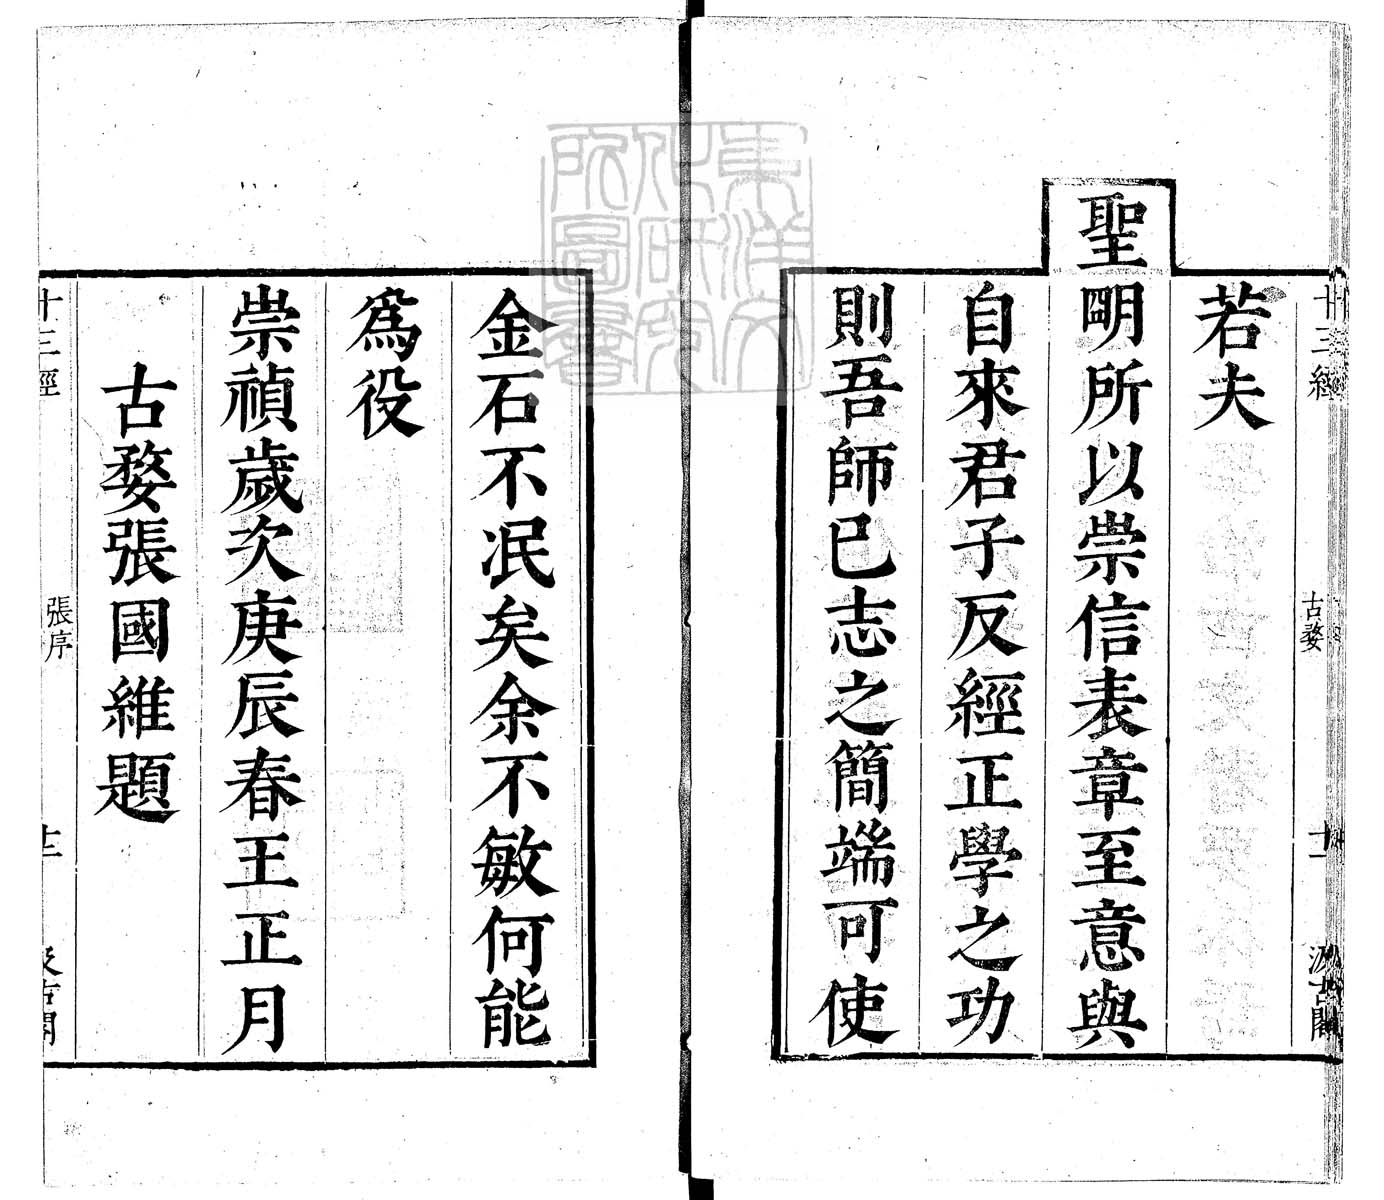 若夫
聖明所以崇信表章至意與
自來君子反經正學之功
則吾師已志之簡端可使
金石不泯矣余不敏何能
爲役
崇禎歲次庚辰春王正月
古婺張國維題
十三經
古婺
十一
汲古閣
十三經
張序
十二
汲古閣
東洋文化研究所圖書